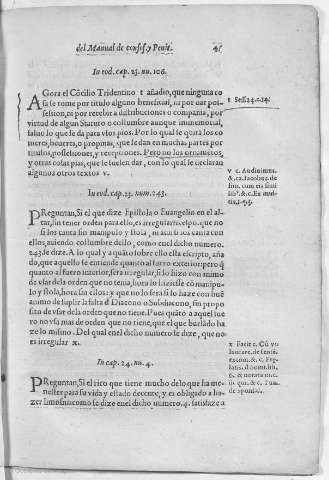 del Manual de confes. y Penit. 45
In eod. cap. 25. nu. 106.
AGora el Cōcilio Tridentino t añadio, que ninguna co
sa se tome por titulo alguno beneficial, ni por dar pos-
session, ni por recebir a distribuciones o compania, por
virtud de algun Statuto o costumbre aunque immemorial,
saluo lo que se da para vsos pios. Por lo qual se quita los co
meres, beueres, o propinas, que se dan en muchas partes por
titulos, possessiones, y recepciones. Pero no los ornamētos,
y otras cosas pias, que se suelen dar, con lo qual se declaran
algunos otros textos v.
t Sess. 24. c. 14.
v c. Audiuimus.
In eod. cap. 25. num. 243.
PReguntan, Si el que dize Epistola o Euangelio en el al-
tar, sin tener orden para ello, es irregular, respo. que no
si los canta sin manipulo y stola, ni aun si los canta con
ellos, auiendo costumbre dello, como enel dicho numero.
243. se dize. A lo qual y a quāto sobre ello esta escripto, aña
do, que aquello se entiende quanto al fuero exterior: pero q̄
quanto al fuero interior, sera irregular, si lo hizo con animo
de vsar dela orden que no tenia, hora lo hiziesse cō manipu-
lo y stola, hora sin ellos: y que no lo sera si lo haze con buē
animo de suplir la falta d̄l Diacono o Subdiacono, sin proposi
to de vsar dela orden que no tiene. Pues quāto a aquel fue
ro no vsa mas de orden que no tiene, que el que burlādo ha
ze lo mismo. Del qual enel dicho numero se dize, que no
es irregular x.
In cap. 24. nu. 4.
PReguntan, Si el rico que tiene mucho delo que ha me-
nester para su vida y estado decente, y es obligado a ha-
zer limosna como se dize enel dicho numero. 4. satisfaze a